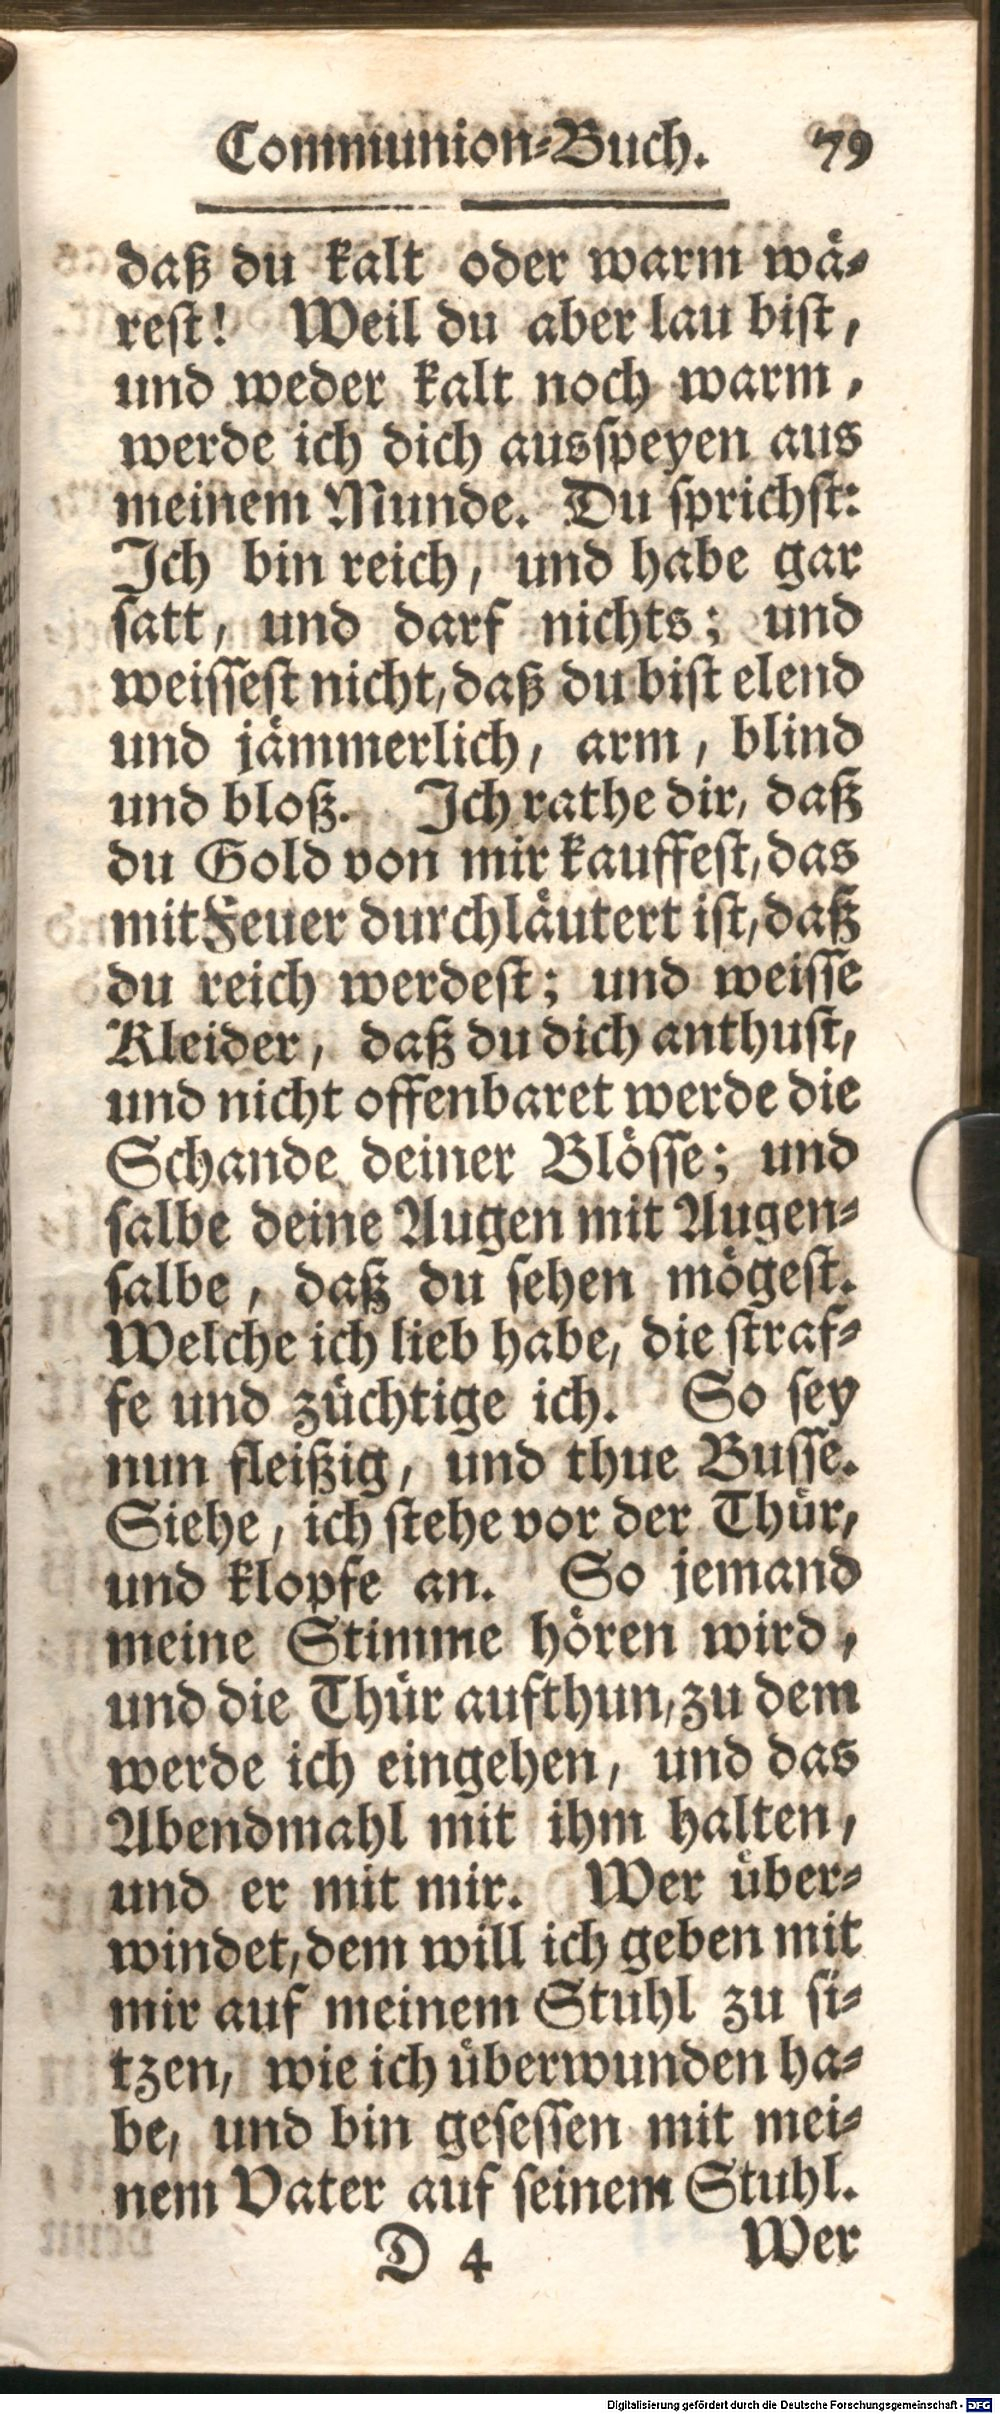 Communion-Buch. 79
daß du kalt oder warm wä-
rest! Weil du aber lau bist,
und weder kalt noch warm,
werde ich dich ausspeyen aus
meinem Munde. Du sprichst:
Ich bin reich, und habe gar
satt, und darf nichts; und
weissest nicht, daß du bist elend
und jämmerlich, arm, blind
und bloß. Ich rathe dir, daß
du Gold von mir kauffest, das
mit Feuer durchläutert ist, daß
du reich werdest; und weisse
Kleider, daß du dich anthust,
und nicht offenbaret werde die
Schande deiner Blösse; und
salbe deine Augen mit Augen-
salbe, daß du sehen mögest.
Welche ich lieb habe, die straf-
fe und züchtige ich. So sey
nun fleißig, und thue Busse.
Siehe, ich stehe vor der Thür,
und klopfe an. So jemand
meine Stimme hören wird,
und die Thür aufthun, zu dem
werde ich eingehen, und das
Abendmahl mit ihm halten,
und er mit mir. Wer über-
windet, dem will ich geben mit
mir auf meinem Stuhl zu si-
tzen, wie ich überwunden ha-
be, und bin gesessen mit mei-
nem Vater auf seinem Stuhl.
D 4 Wer
Digitalisierung gefördert durch die Deutsche Forschungsgemeinschaft - DFG